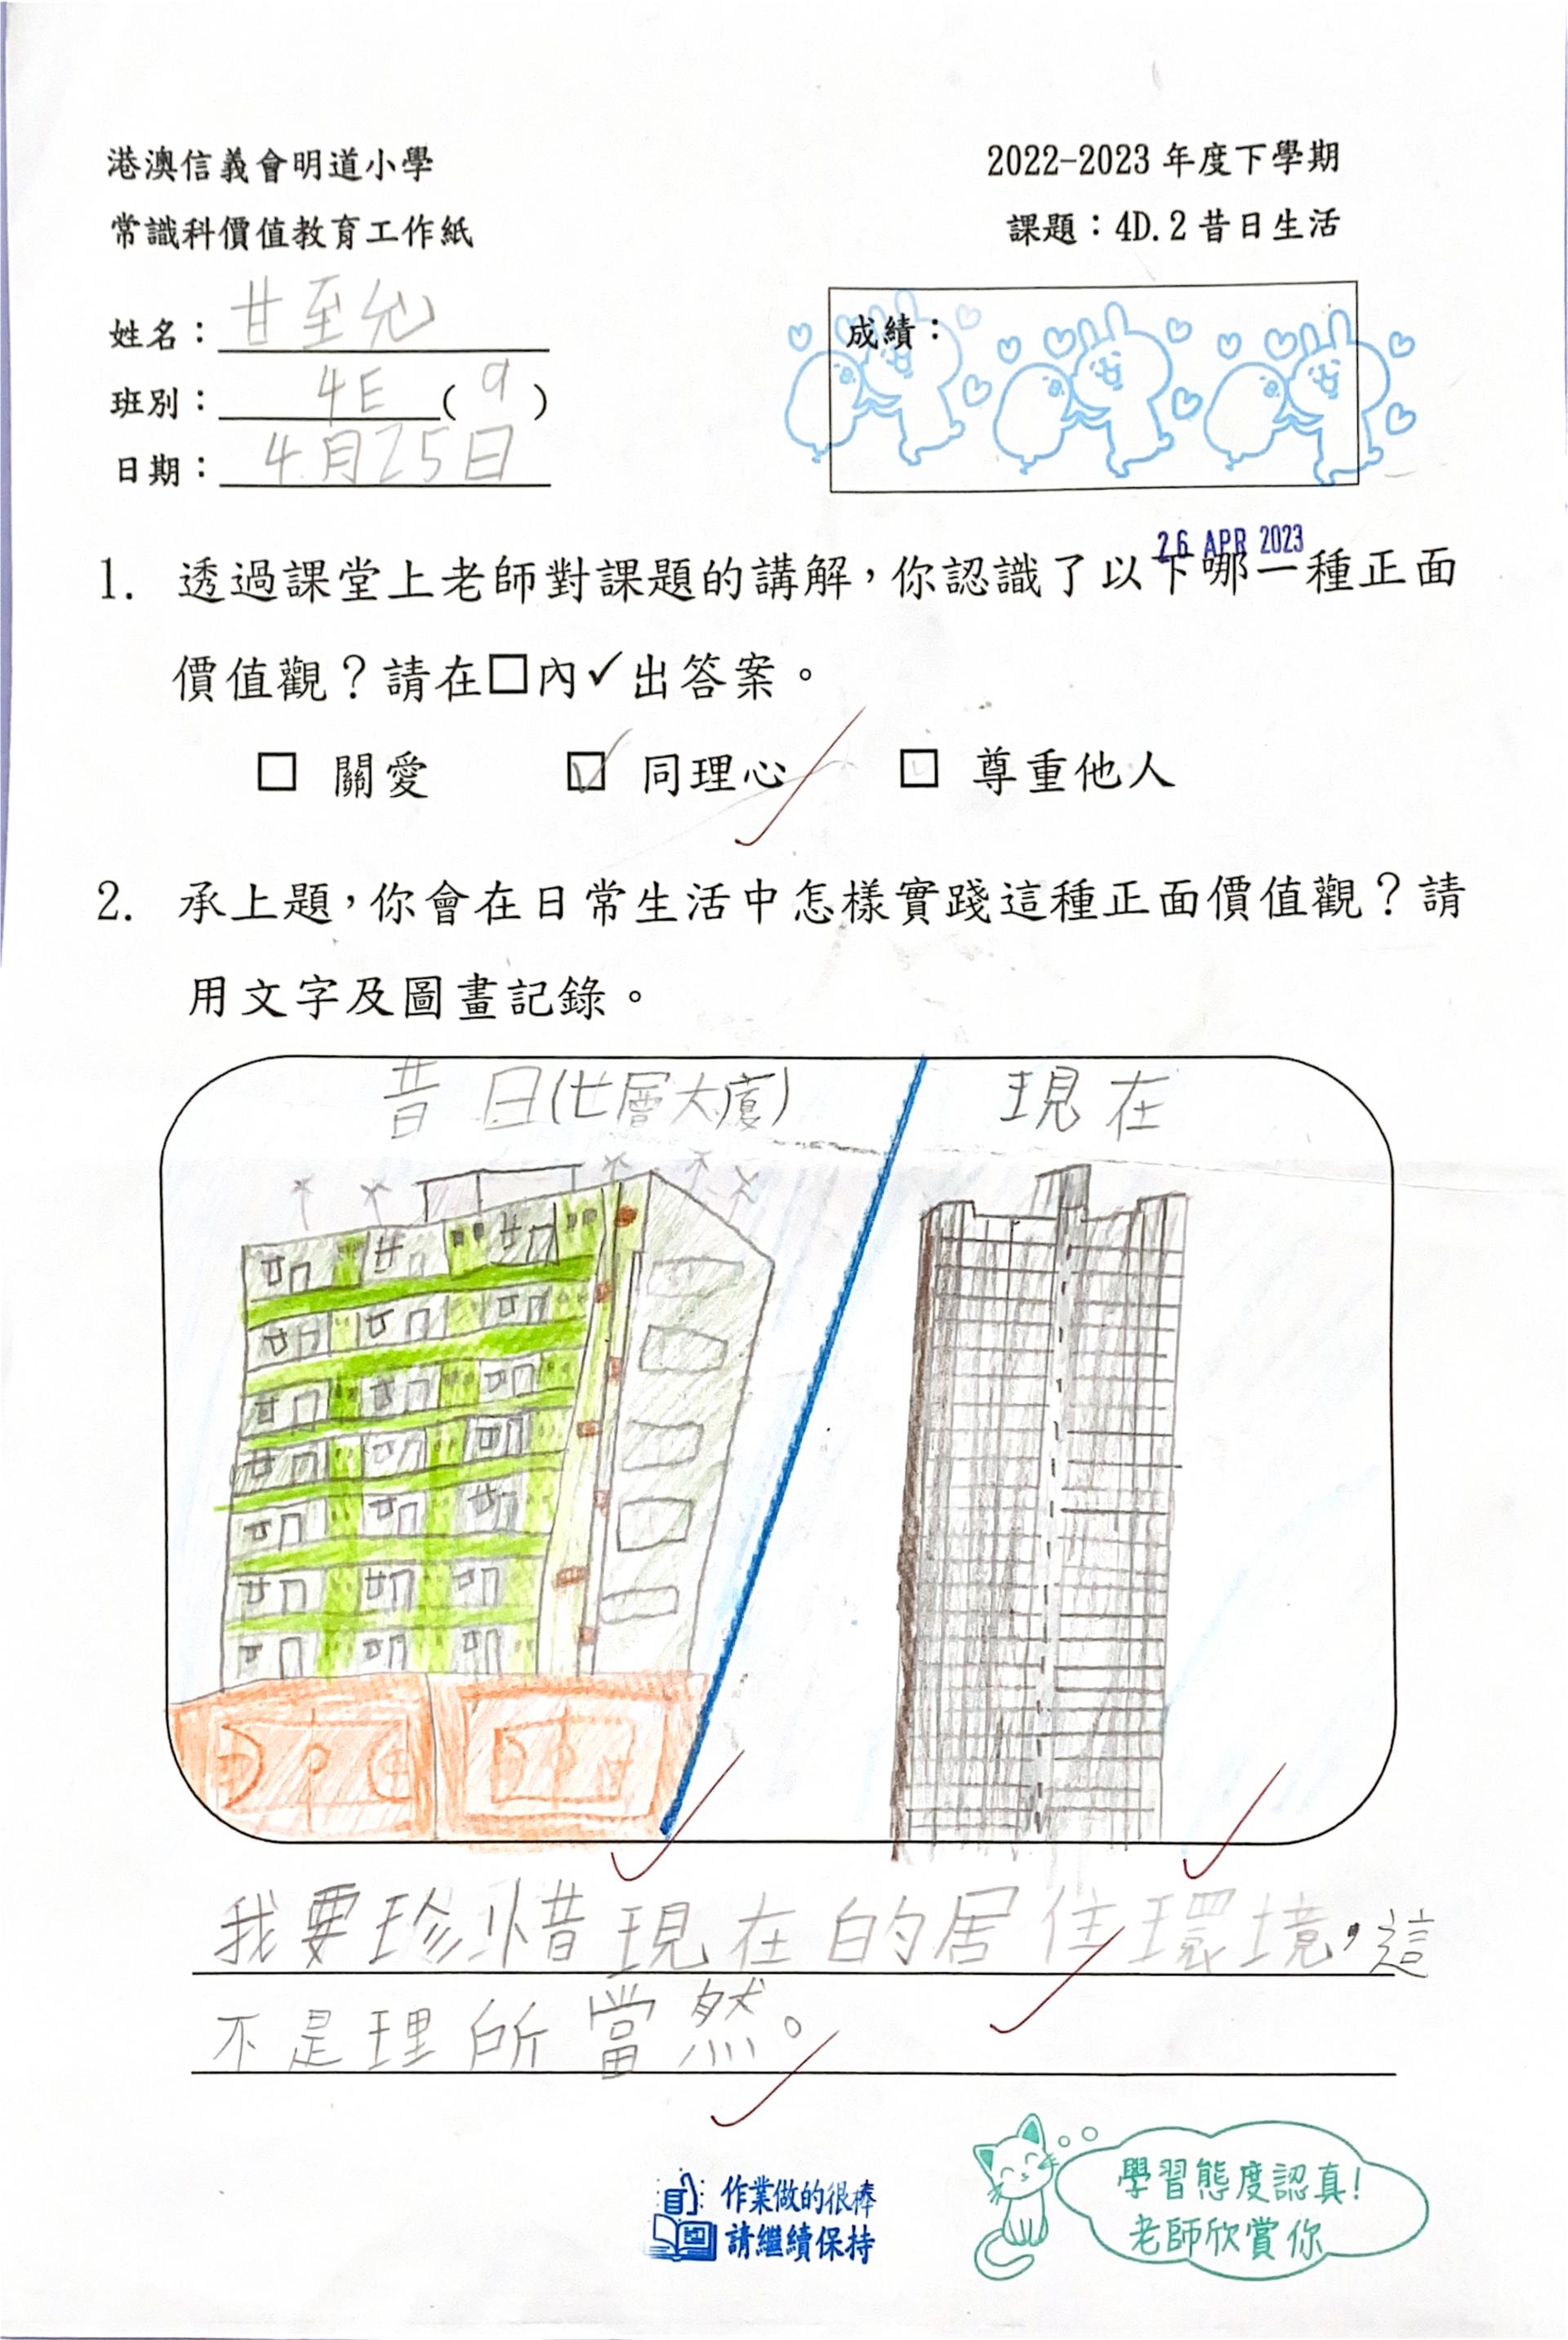 港澳信義會明道小學
2022-2023 年度下學期
常識科價值教育工作紙
課題：4D.2 昔日生活
姓名：甘至允
成績：
班別：4E(9)
日期：4月25日
26 APR 2023
1. 透過課堂上老師對課題的講解，你認識了以下哪一種正面
價值觀？請在□內✓出答案。
□ 關愛 ☑ 同理心 □ 尊重他人
2. 承上題，你會在日常生活中怎樣實踐這種正面價值觀？請
用文字及圖畫記錄。
昔日(七層大廈) 現在
我要珍惜現在的居住環境，這
不是理所當然。
作業做的很棒
請繼續保持
學習態度認真！
老師欣賞你